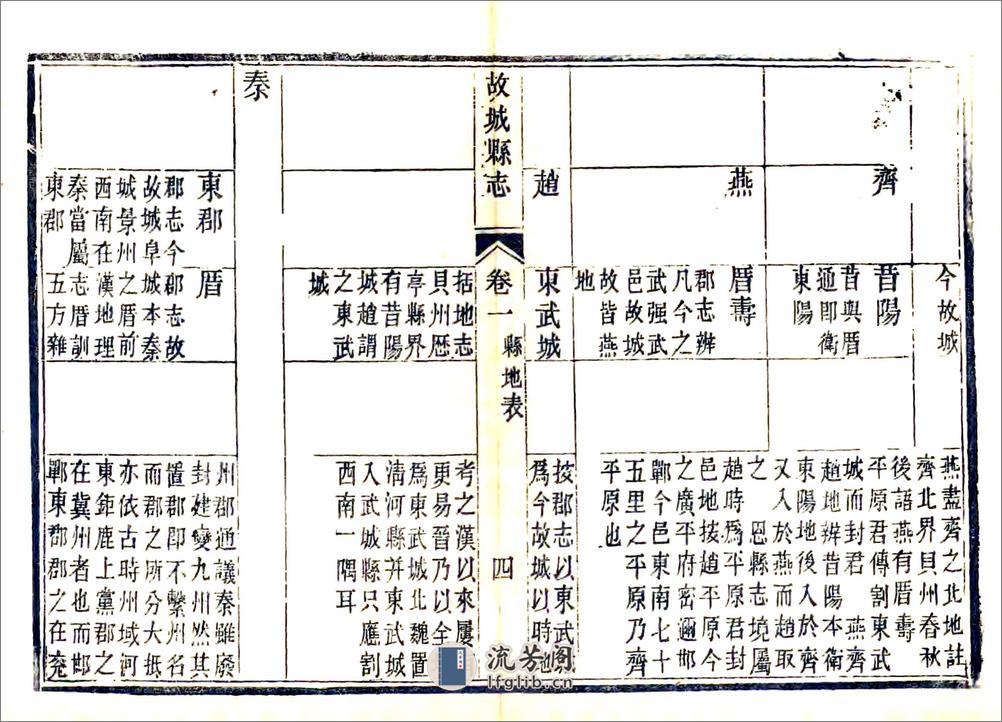 今故城
燕盡齊之北地註
齊北界貝州春秋
後語燕有厝壽
齊
昔陽
昔與厝
通即衛
東陽
平原君傳割東武
城而封君 燕齊
趙地辨昔陽本衛
東陽地後入於齊
又入於燕而趙取
之 恩縣志境屬
燕
厝壽
郡志辨
凡今之
武强武
邑故城
故皆燕
地
趙時爲平原君封
邑地按趙平原今
之廣平府密邇邯
鄲今邑東南七十
五里之平原乃齊
平原也
趙
東武城
按郡志以東武城
爲今故城以時地
故城縣志
卷一
縣地表
四
括地志
貝州歴
亭縣界
有昔陽
城趙謂
之東武
城
考之漢以來屢
更易晉乃以全
爲東武城北魏置
清河縣并東武城
入武城縣只應割
西南一隅耳
秦
東郡
郡志今
故城阜
城景州
西南在
秦當屬
東郡
厝
郡志故
城本秦
之厝前
漢地理
志厝訓
五方雜
州郡通議秦雖廢
封建變九州然其
置郡即不繫州名
而郡之所分大抵
亦依古時州域河
東鉅鹿上黨郡之
在冀州者也而邯
鄲東郡郡之在兗
流芳阁
lfglib.cn